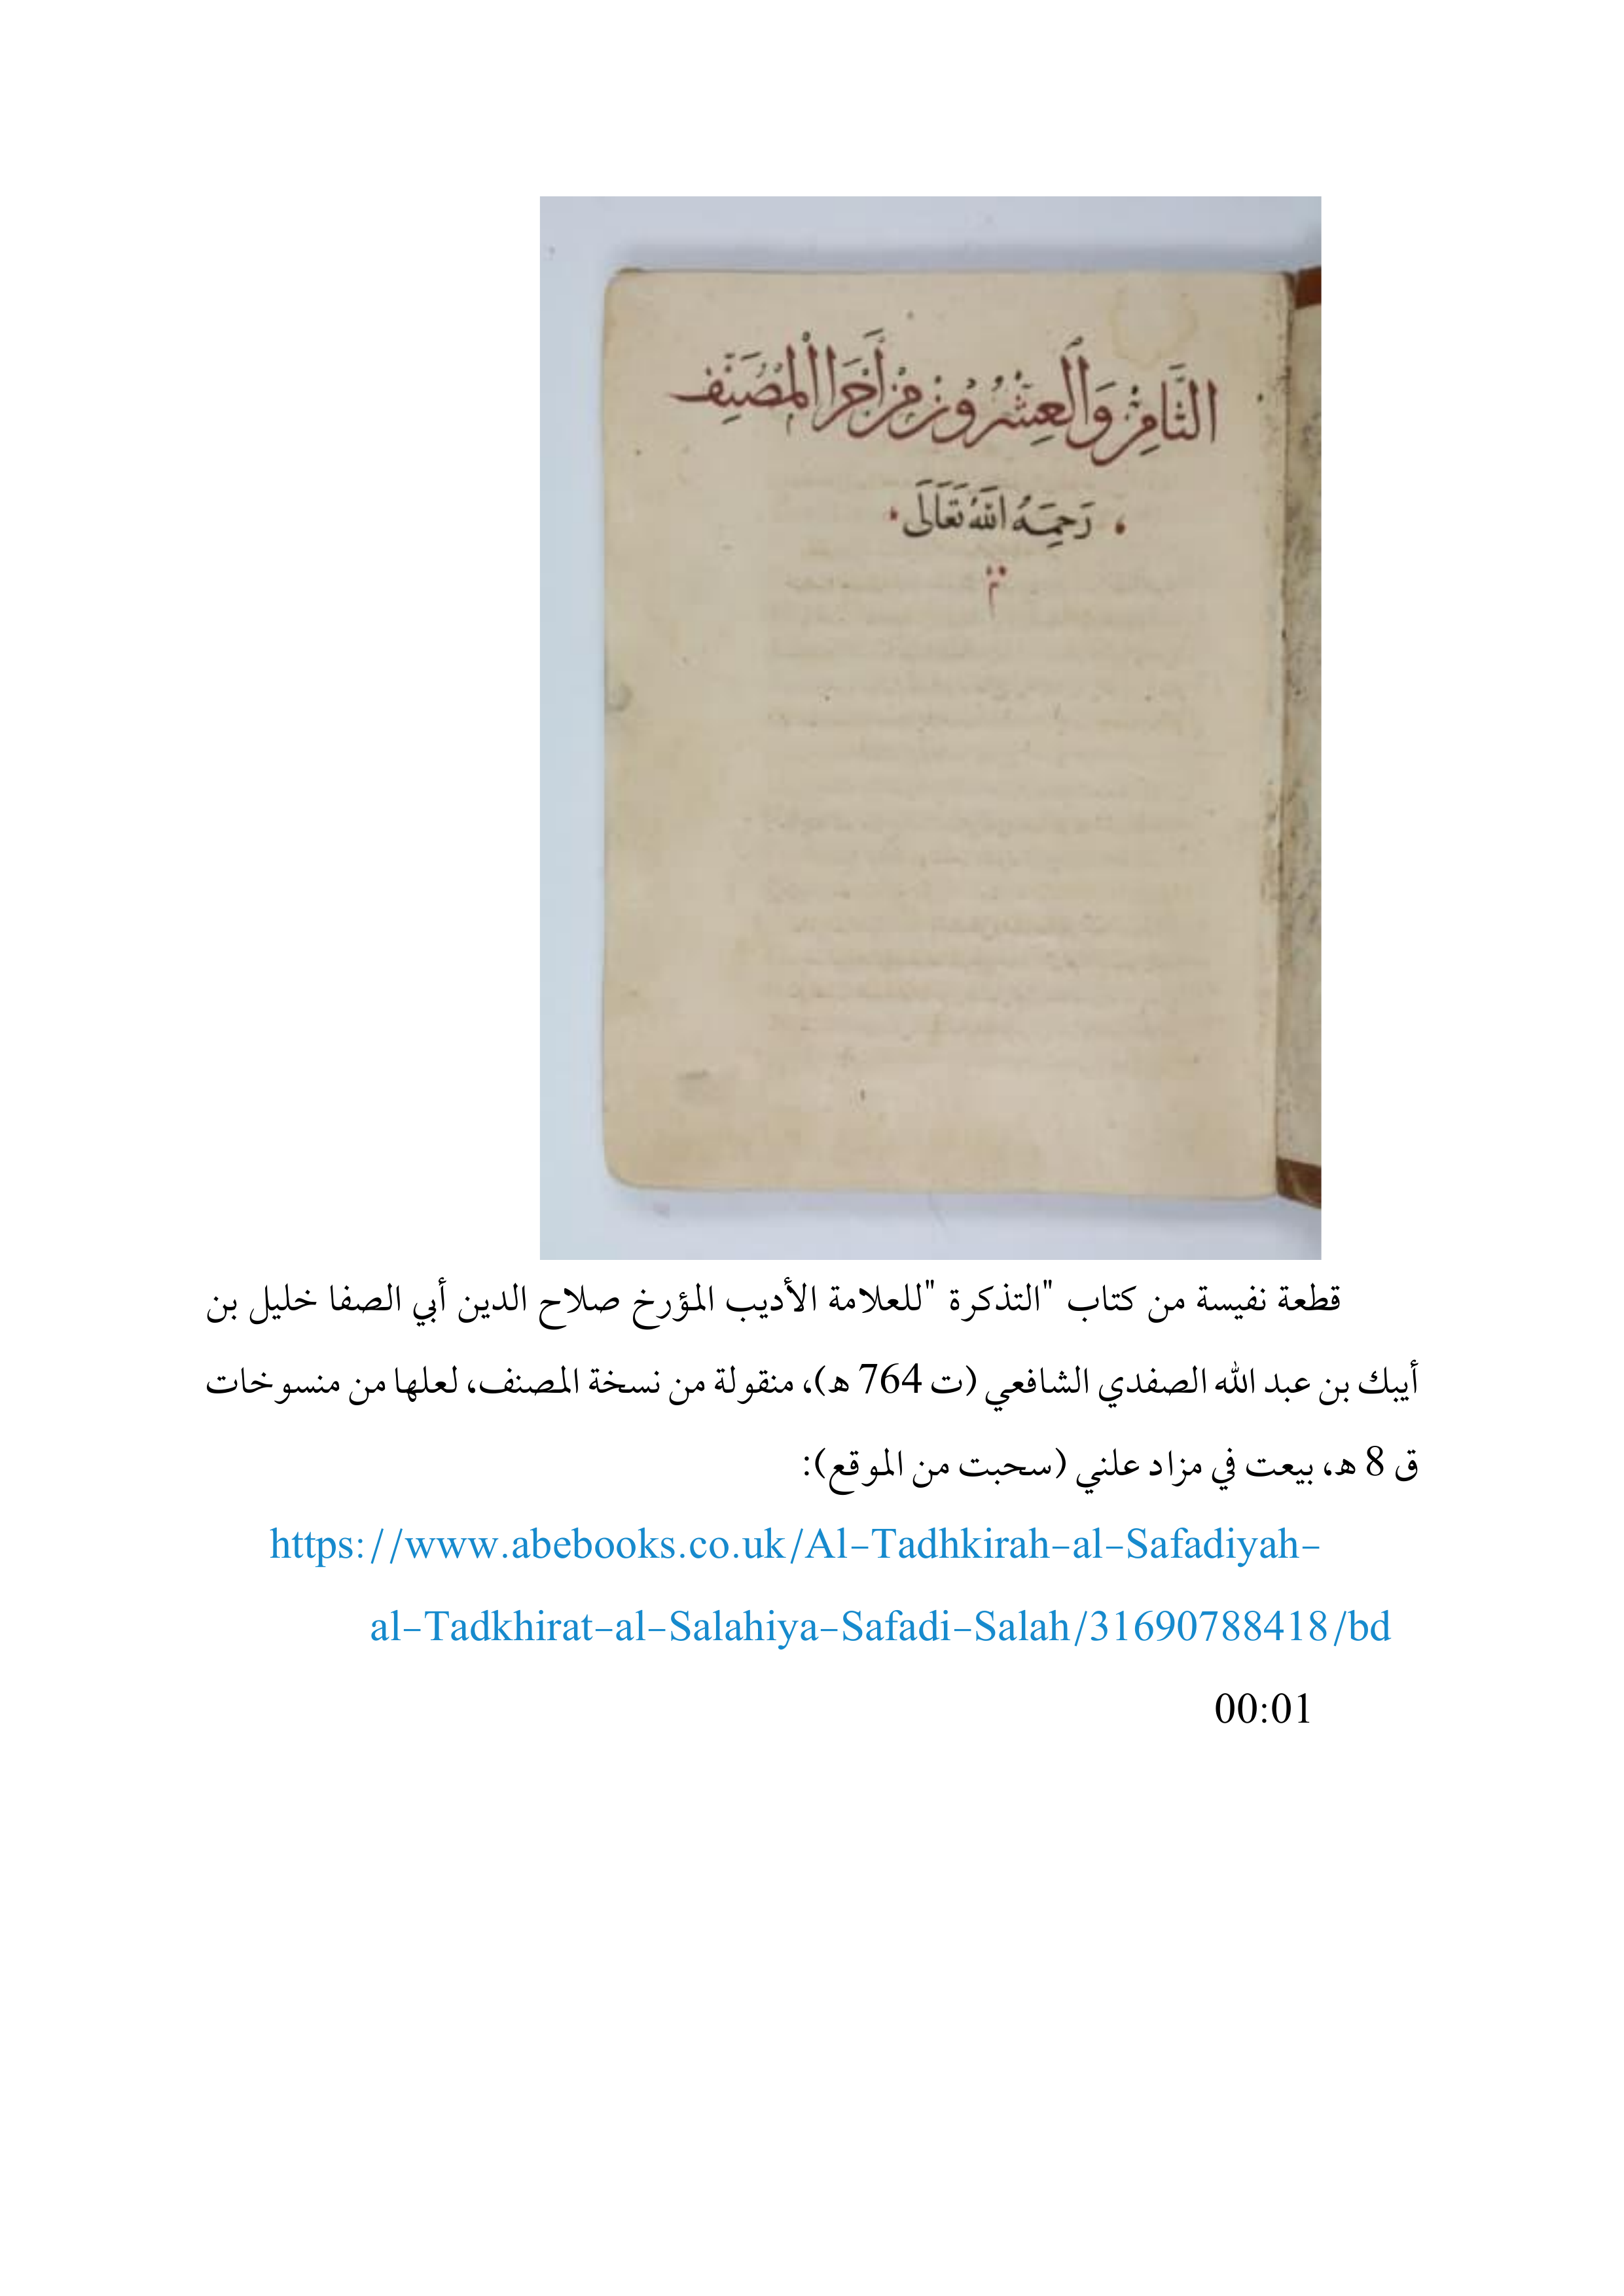 الثَّامِنُ وَالْعِشْرُونَ مِنْ أَجْزَاءِ الْمُصَنِّفِ
رَحِمَهُ اللَّهُ تَعَالَى
قطعة نفيسة من كتاب "التذكرة "للعلامة الأديب المؤرخ صلاح الدين أبي الصفا خليل بن
أيبك بن عبد الله الصفدي الشافعي (ت 764 ه)، منقولة من نسخة المصنف، لعلها من منسوخات
ق 8 ه، بيعت في مزاد علني (سحبت من الموقع):
https://www.abebooks.co.uk/Al-Tadhkirah-al-Safadiyah-
al-Tadkhirat-al-Salahiya-Safadi-Salah/31690788418/bd
00:01